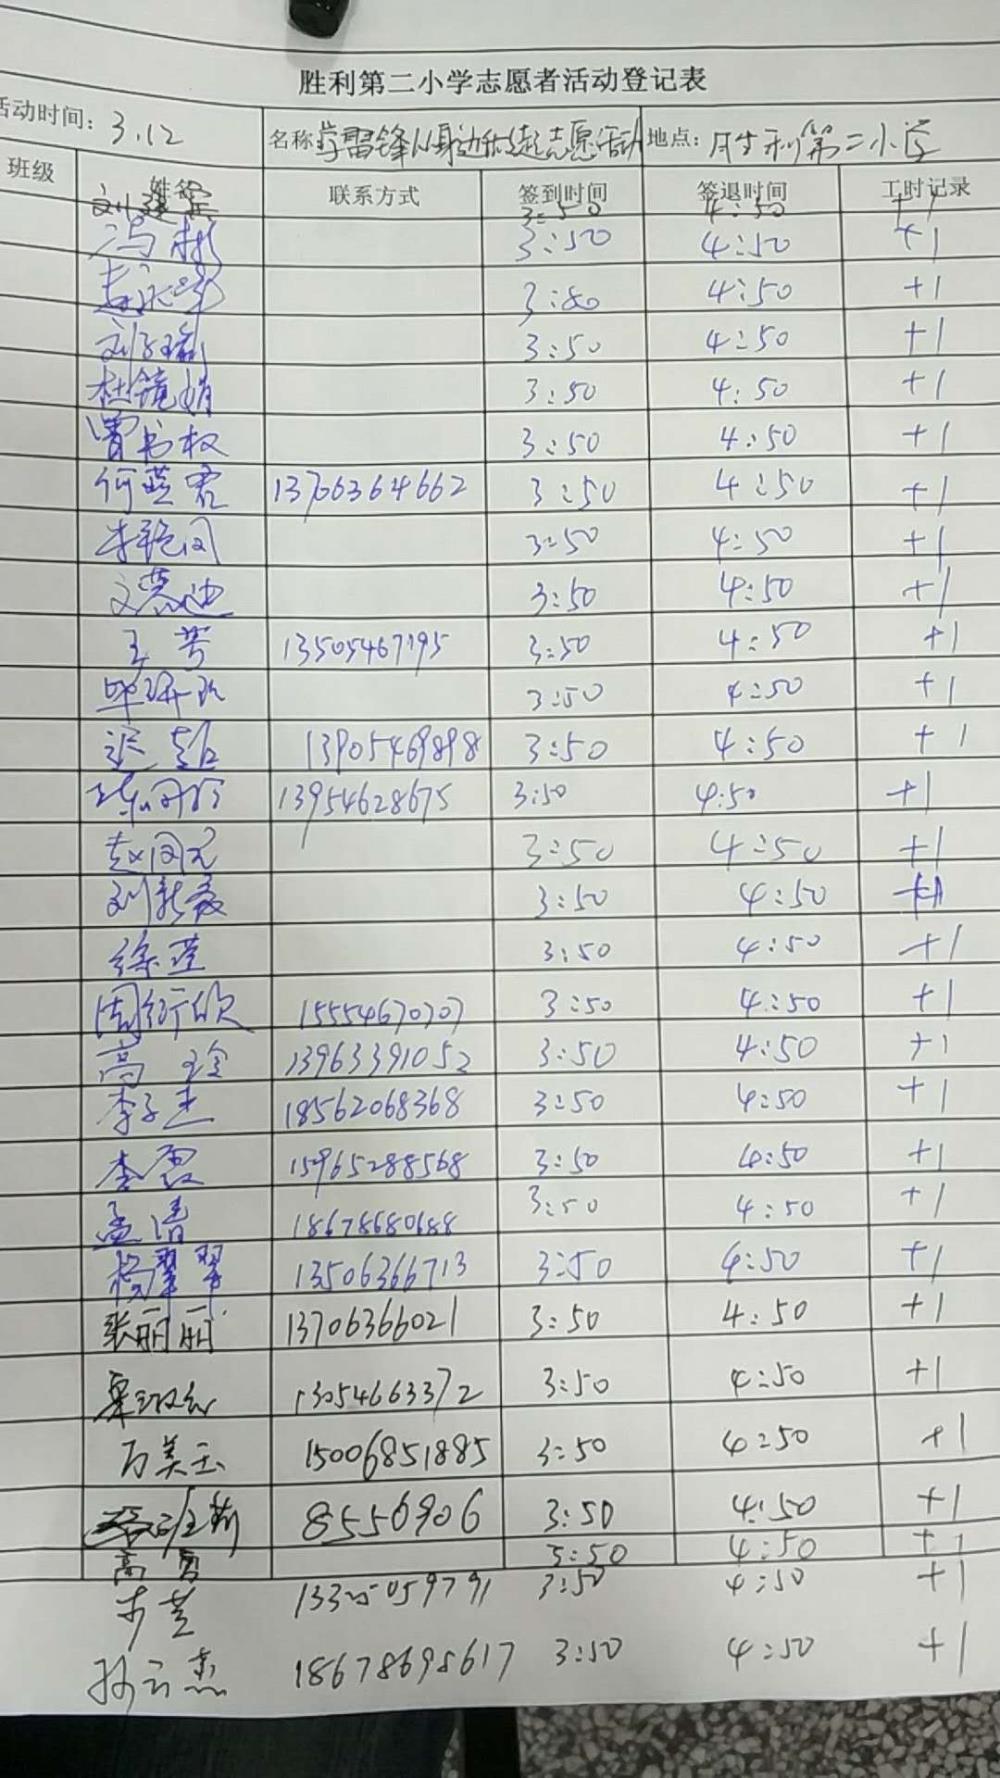 胜利第二小学志愿者活动登记表
活动时间: 3.12 名称 学雷锋从身边做起志愿活动 地点: 胜利第二小学
班级 姓名 联系方式 签到时间 签退时间 工时记录
3:50 4:50 +1
冯彬 3:50 4:50 +1
3:50 4:50 +1
刘子瑜 3:50 4:50 +1
杜镜娟 3:50 4:50 +1
曹书权 3:50 4:50 +1
何莹君 13706364662 3:50 4:50 +1
李艳闵 3:50 4:50 +1
文慕迪 3:50 4:50 +1
王芳 13505467195 3:50 4:50 +1
3:50 4:50 +1
迟超 13905469898 3:50 4:50 +1
13954628675 3:50 4:50 +1
赵闵元 3:50 4:50 +1
刘新霞 3:50 4:50 +1
徐莹 3:50 4:50 +1
周衍欣 15554670707 3:50 4:50 +1
高玲 13963391052 3:50 4:50 +1
李子杰 18562068368 3:50 4:50 +1
李霞 15965288568 3:50 4:50 +1
孟涛 18678680688 3:50 4:50 +1
杨翠翠 13506366713 3:50 4:50 +1
张丽丽 13706366021 3:50 4:50 +1
13054663372 3:50 4:50 +1
万美玉 15006851885 3:50 4:50 +1
8556906 3:50 4:50 +1
高勇 3:50 4:50 +1
李芸 13325059791 3:50 4:50 +1
孙云杰 18678695617 3:50 4:50 +1